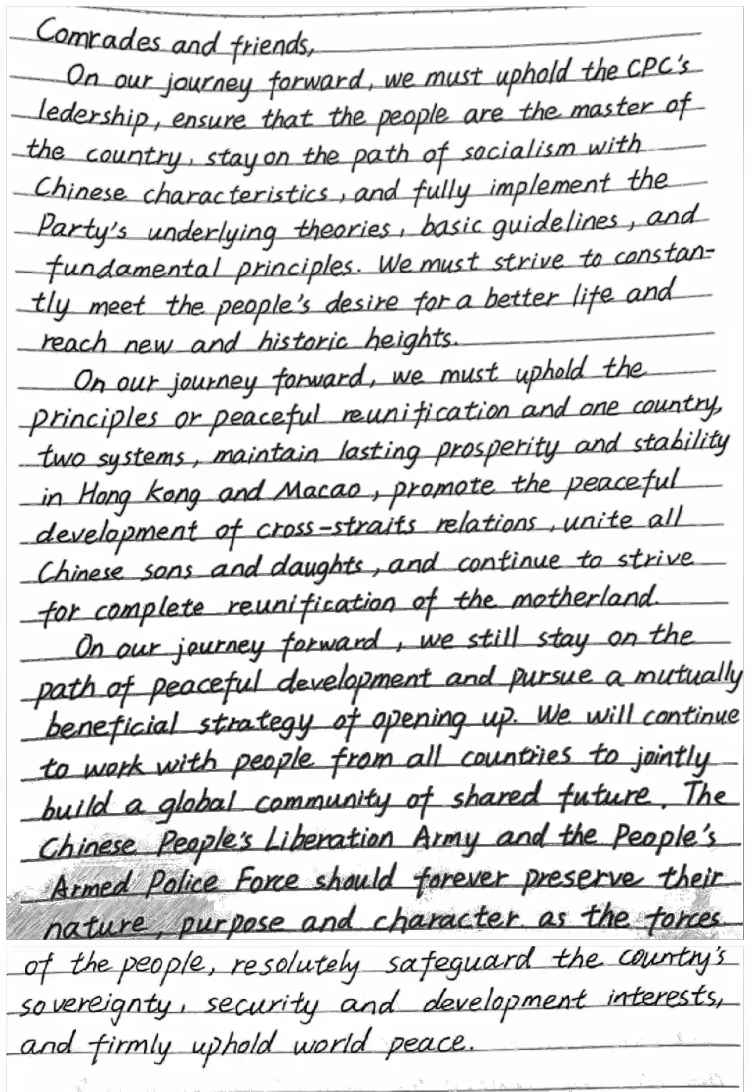 Comrades and friends,
On our journey forward, we must uphold the CPC's
ledership, ensure that the people are the master of
the country, stay on the path of socialism with
Chinese characteristics, and fully implement the
Party's underlying theories, basic guidelines, and
fundamental principles. We must strive to constan-
tly meet the people's desire for a better life and
reach new and historic heights.
On our journey forward, we must uphold the
principles or peaceful reunification and one country,
two systems, maintain lasting prosperity and stability
in Hong Kong and Macao, promote the peaceful
development of cross-straits relations, unite all
Chinese sons and daughts, and continue to strive
for complete reunification of the motherland.
On our journey forward, we still stay on the
path of peaceful development and pursue a mutually
beneficial strategy of opening up. We will continue
to work with people from all countries to jointly
build a global community of shared future. The
Chinese People's Liberation Army and the People's
Armed Police Force should forever preserve their
nature, purpose and character as the forces
of the people, resolutely safeguard the country's
sovereignty, security and development interests,
and firmly uphold world peace.